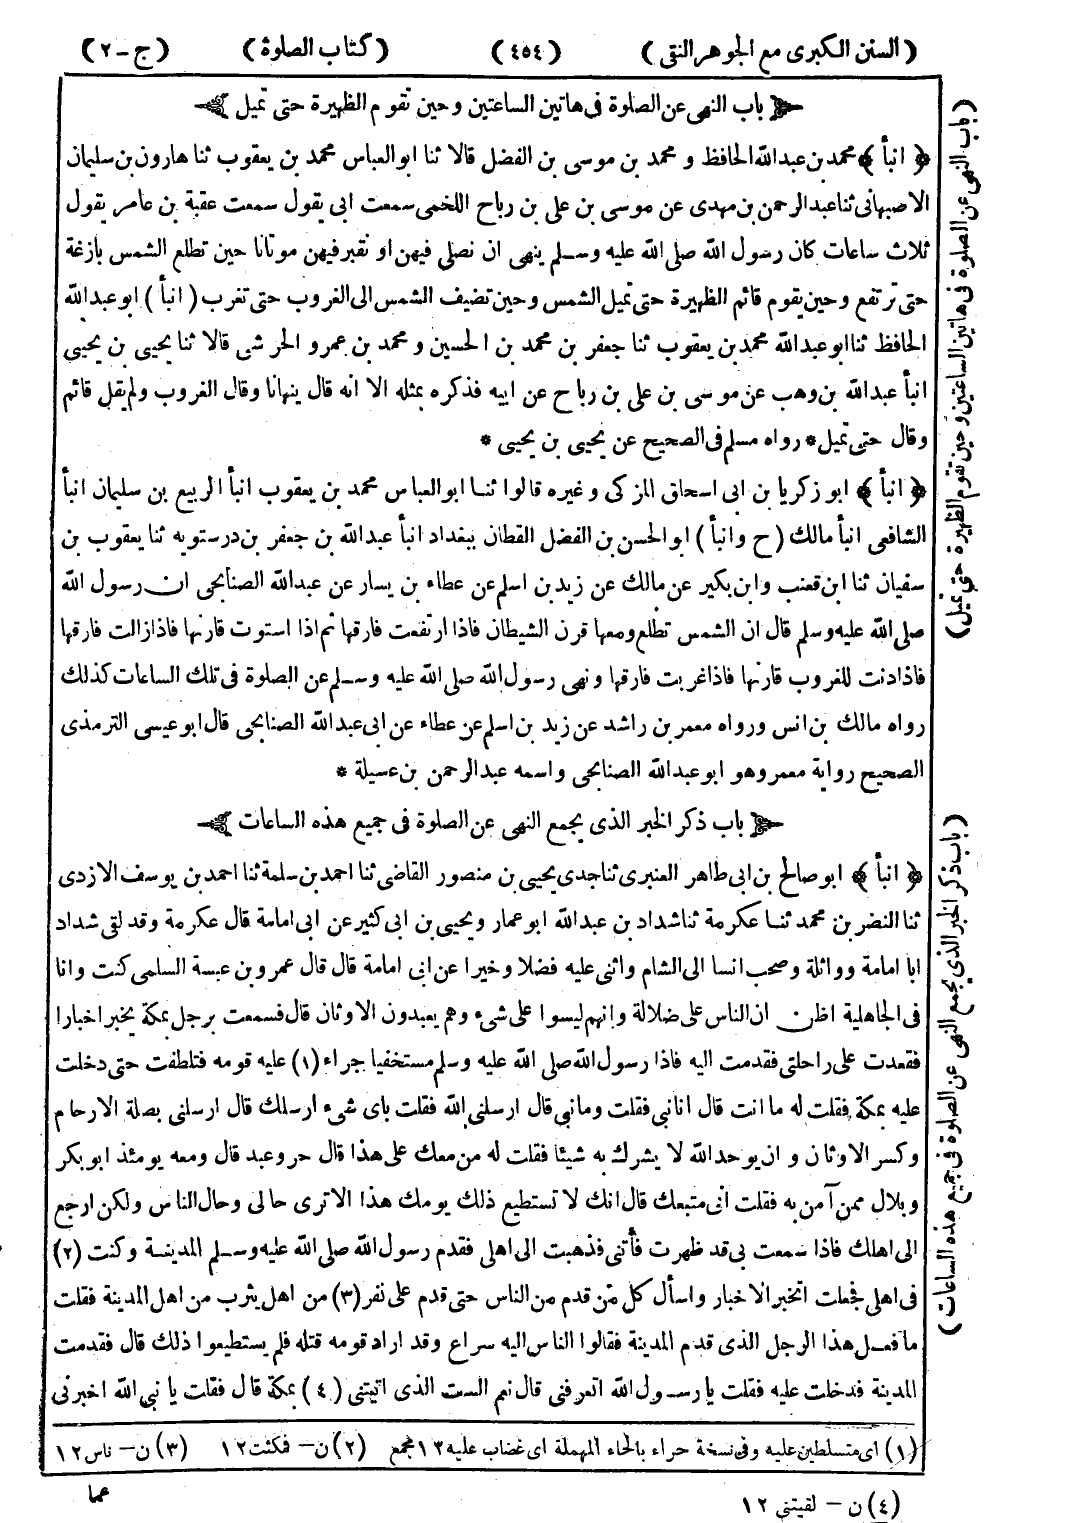 (السنن الكبرى مع الجوهر النقى) (٤٥٤) (كتاب الصلوة) (ج-٢)
باب النهى عن الصلوة فى هاتين الساعتين وحين تقوم الظهيرة حتى تميل
﴿ انبأ ﴾ محمد بن عبدالله الحافظ و محمد بن موسى بن الفضل قالا ثنا ابوالعباس محمد بن يعقوب ثنا هارون بن سليمان
الاصبهانى ثنا عبدالرحمن بن مهدى عن موسى بن على بن رباح اللخمى سمعت ابى يقول سمعت عقبة بن عامر يقول
ثلاث ساعات كان رسول الله صلى الله عليه وسلم ينهى ان نصلى فيهن او نقبر فيهن موتانا حين تطلع الشمس بازغة
حتى ترتفع وحين يقوم قائم الظهيرة حتى تميل الشمس وحين تضيف الشمس الى الغروب حتى تغرب (انبأ) ابو عبدالله
الحافظ ثنا ابو عبدالله محمد بن يعقوب ثنا جعفر بن محمد بن الحسين و محمد بن عمرو الحرشى قالا ثنا يحيى بن يحيى
انبأ عبدالله بن وهب عن موسى بن على بن رباح عن ابيه فذكره بمثله الا انه قال ينهانا وقال الغروب ولم يقل قائم
وقال حتى تميل * رواه مسلم فى الصحيح عن يحيى بن يحيى *
﴿ انبأ ﴾ ابو زكريا بن ابى اسحاق المزكى وغيره قالوا ثنا ابوالعباس محمد بن يعقوب انبأ الربيع بن سليمان انبأ
الشافعى انبأ مالك (ح وانبأ) ابوالحسن بن الفضل القطان ببغداد انبأ عبدالله بن جعفر بن درستويه ثنا يعقوب بن
سفيان ثنا ابن قعنب وابن بكير عن مالك عن زيد بن اسلم عن عطاء بن يسار عن عبدالله الصنابحى ان رسول الله
صلى الله عليه وسلم قال ان الشمس تطلع ومعها قرن الشيطان فاذا ارتفعت فارقها ثم اذا استوت قارنها فاذا زالت فارقها
فاذا دنت للغروب قارنها فاذا غربت فارقها ونهى رسول الله صلى الله عليه وسلم عن الصلوة فى تلك الساعات كذلك
رواه مالك بن انس ورواه معمر بن راشد عن زيد بن اسلم عن عطاء عن ابى عبدالله الصنابحى قال ابو عيسى الترمذى
الصحيح رواية معمر وهو ابو عبدالله الصنابحى واسمه عبدالرحمن بن عسيلة *
باب ذكر الخبر الذى يجمع النهى عن الصلوة فى جميع هذه الساعات
﴿ انبأ ﴾ ابو صالح بن ابى طاهر العنبرى ثنا جدى يحيى بن منصور القاضى ثنا احمد بن سلمة ثنا احمد بن يوسف الازدى
ثنا النضر بن محمد ثنا عكرمة ثنا شداد بن عبدالله ابو عمار ويحيى بن ابى كثير عن ابى امامة قال عكرمة وقد لقى شداد
ابا امامة وواثلة وصحب انسا الى الشام واثنى عليه فضلا وخيرا عن ابى امامة قال قال عمرو بن عبسة السلمى كنت وانا
فى الجاهلية اظن ان الناس على ضلالة وانهم ليسوا على شىء وهم يعبدون الاوثان قال فسمعت برجل بمكة يخبر اخبارا
فقعدت على راحلتى فقدمت اليه فاذا رسول الله صلى الله عليه وسلم مستخفيا جراء (١) عليه قومه فتلطفت حتى دخلت
عليه بمكة فقلت له ما انت قال انا نبى فقلت وما نبى قال ارسلنى الله فقلت باى شىء ارسلك قال ارسلنى بصلة الارحام
وكسر الاوثان و ان يوحد الله لا يشرك به شيئا فقلت له من معك على هذا قال حر وعبد قال ومعه يومئذ ابو بكر
وبلال ممن آمن به فقلت انى متبعك قال انك لا تستطيع ذلك يومك هذا الا ترى حالى وحال الناس ولكن ارجع
الى اهلك فاذا سمعت بى قد ظهرت فأتنى فذهبت الى اهلى فقدم رسول الله صلى الله عليه وسلم المدينة وكنت (٢)
فى اهلى فجعلت اتخبر الاخبار واسأل كل من قدم من الناس حتى قدم على نفر (٣) من اهل يثرب من اهل المدينة فقلت
ما فعل هذا الرجل الذى قدم المدينة فقالوا الناس اليه سراع وقد اراد قومه قتله فلم يستطيعوا ذلك قال فقدمت
المدينة فدخلت عليه فقلت يا رسول الله اتعرفنى قال نعم الست الذى اتيتنى (٤) بمكة قال فقلت يا نبى الله اخبرنى
(١) اى متسلطين عليه وفى نسخة حراء بالحاء المهملة اى غضاب عليه ١٢ مجمع (٢) ن - فمكثت ١٢ (٣) ن - ناس ١٢
(٤) ن - لقيتنى ١٢
عما
(باب النهى عن الصلوة فى هاتين الساعتين وحين تقوم الظهيرة حتى تميل)
(باب ذكر الخبر الذى يجمع النهى عن الصلوة فى جميع هذه الساعات)